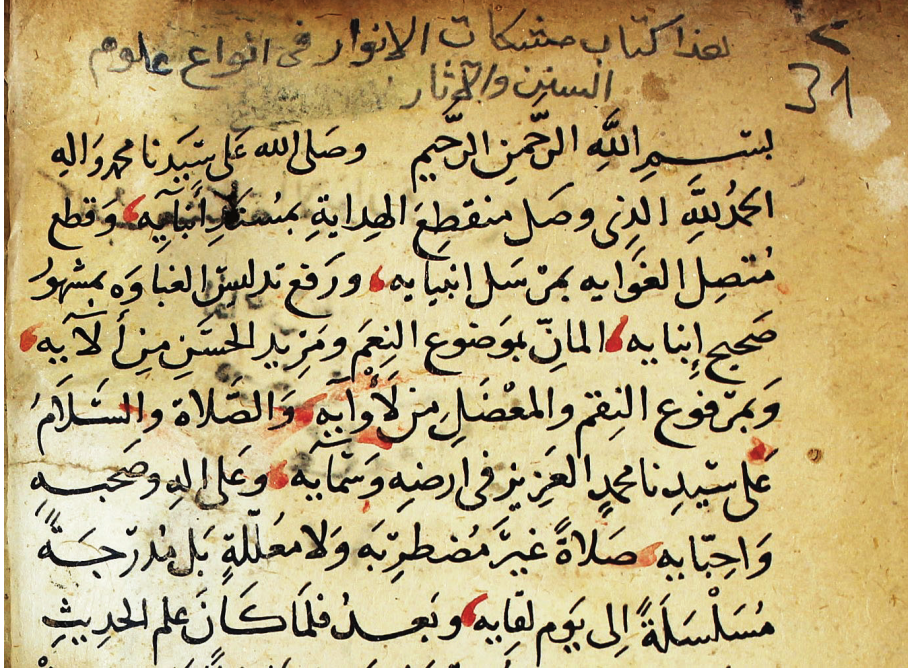 هذا كتاب مشكات الانوار في انواع علوم
السنن والآثار
31
بسم اللَّهِ الرَّحمنِ الرَّحيمِ وصَلى الله عَلى سَيّدَنا محمد وَاله
الحَمدُ للَّهِ الذِى وصَل منقطِعَ الهِدايةِ بمُسنَدِ أنبآيِه وَقطع
مُتصِل الغَوَايه بمرْسَل انبيايه ورَفع تدليسَ الغباوَه بمشهوُر
صَحيح إِنبايه المانّ بموَضوع النِعَم ومَزِيد الحسَنِ مِن أَلآيه
وَبمرَفوع النِقم والمعْضَلِ مِن لَأْوآيِه وَالصَّلاة والسَّلامُ
عَلى سَيّدِنا محمدٍ العَزِيز فى ارضِه وَسَمآيه وعَلى الهِ وصَحبه
وَاحِبّايه صَلاةً غيرَ مُضطرِبَه وَلا معَلّلةٍ بَل مُدرَجَةً
مُسَلْسَلَةً إلى يَوم لقايه وبَعدُ فلمَا كانَ علم الحَديثِ